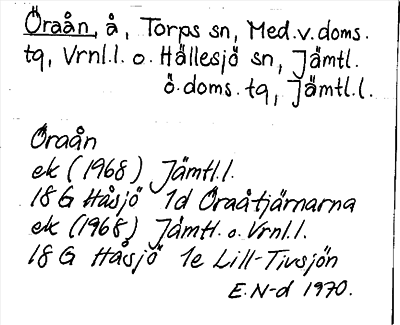 Öraån, å, Torps sn, Med.v.doms.
tq, Vrnl.l. o. Hällesjö sn, Jämtl.
ö.doms.tq, Jämtl.l.
Öraån
ek (1968) Jämtl.l.
18 G Håsjö 1d Öraåtjärnarna
ek (1968) Jämtl. o. Vrnl.l.
18 G Håsjö 1e Lill-Tivsjön
E.N-d 1970.